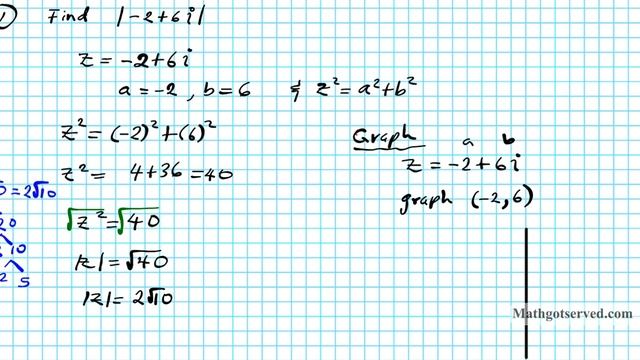 Find |-2+6i|
z = -2+6i
a = -2 , b = 6 & z² = a²+b²
z² = (-2)² + (6)²
z² = 4+36 = 40
√z² = √40
|z| = √40
|z| = 2√10
= 2√10
10
2 5
Graph
a b
z = -2 + 6i
graph (-2, 6)
Mathgotserved.com